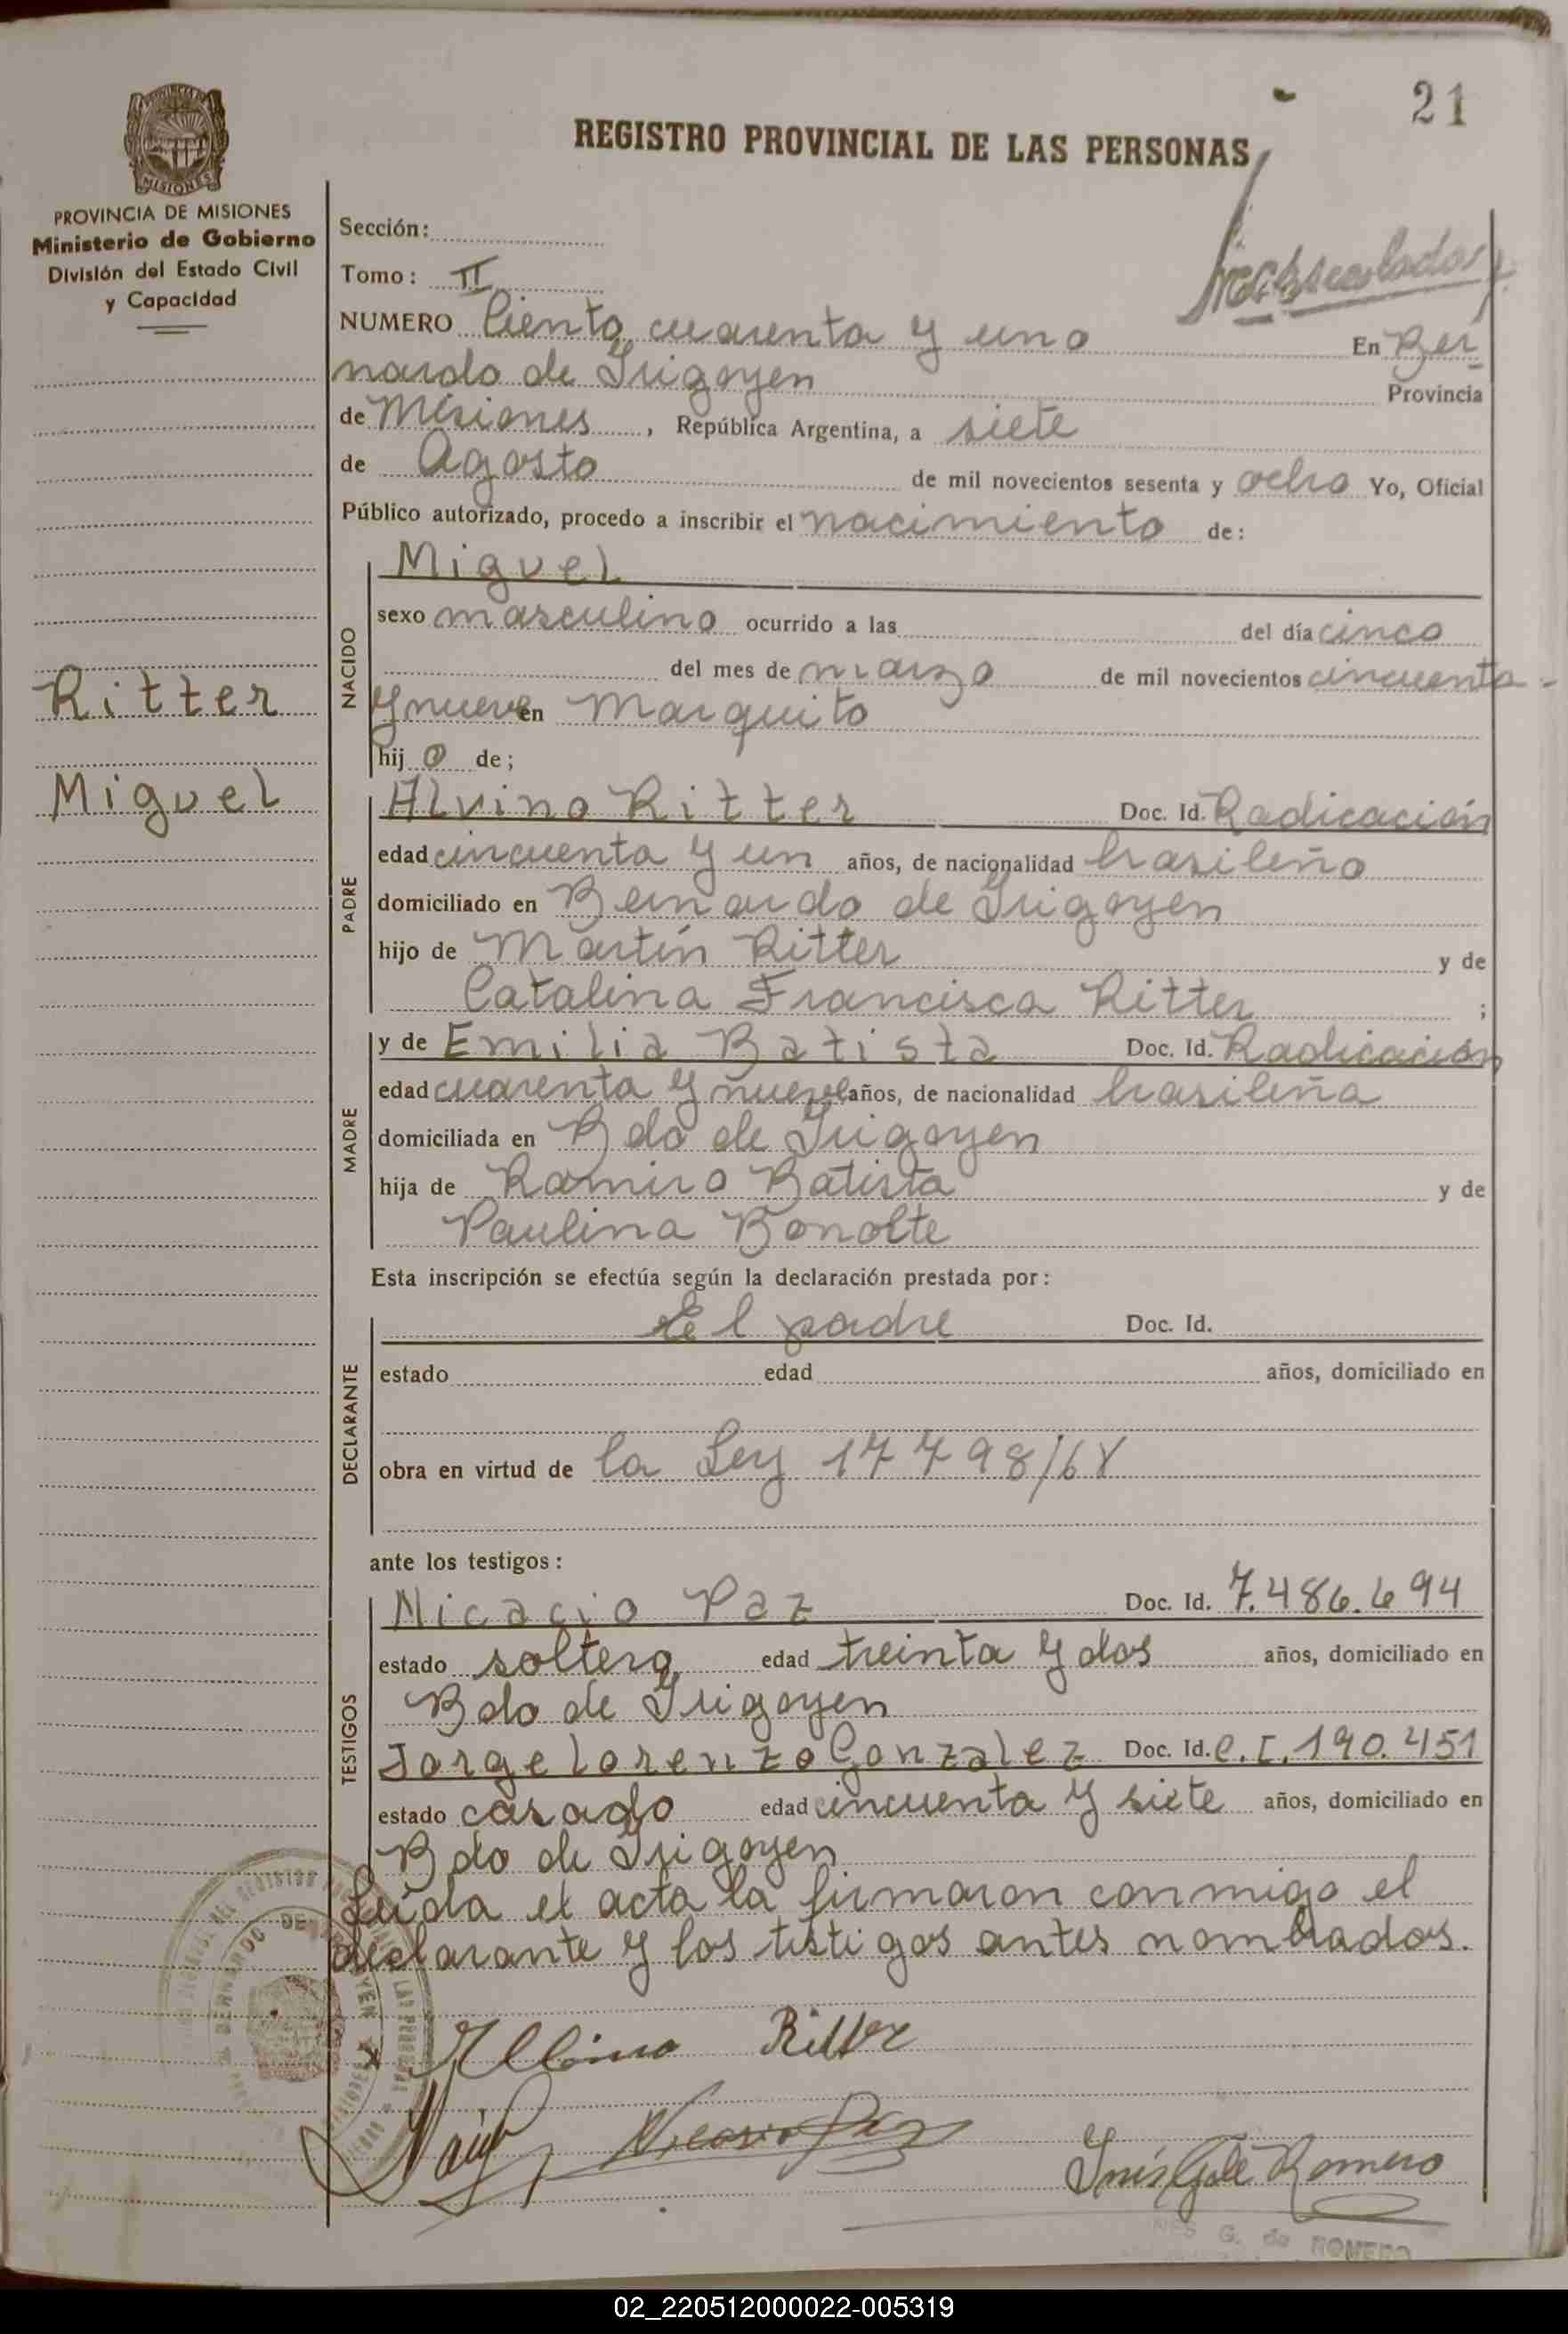 21
REGISTRO PROVINCIAL DE LAS PERSONAS
MISIONES
PROVINCIA DE MISIONES
Ministerio de Gobierno
División del Estado Civil
y Capacidad
Sección:
Tomo: II
NUMERO Ciento cuarenta y uno En Ber
nardo de Irigoyen Provincia
de Misiones, República Argentina, a siete
de Agosto de mil novecientos sesenta y ocho Yo, Oficial
Público autorizado, procedo a inscribir el nacimiento de:
Ritter
Miguel
NACIDO
Miguel
sexo masculino ocurrido a las del día cinco
del mes de marzo de mil novecientos cincuenta
y nueve en Marquito
hijo de;
PADRE
Alvino Ritter Doc. Id. Radicación
edad cincuenta y un años, de nacionalidad brasileño
domiciliado en Bernardo de Irigoyen
hijo de Martín Ritter y de
Catalina Francisca Ritter ;
MADRE
y de Emilia Batista Doc. Id. Radicación
edad cuarenta y nueve años, de nacionalidad brasileña
domiciliada en Bdo de Irigoyen
hija de Ramiro Batista y de
Paulina Bonolte
Esta inscripción se efectúa según la declaración prestada por:
DECLARANTE
El padre Doc. Id.
estado edad años, domiciliado en
obra en virtud de la Ley 17798/68
ante los testigos:
TESTIGOS
Nicacio Paz Doc. Id. 7.486.694
estado soltero edad treinta y dos años, domiciliado en
Bdo de Irigoyen
Jorge Lorenzo Gonzalez Doc. Id. C.I. 190.451
estado casado edad cincuenta y siete años, domiciliado en
Bdo de Irigoyen
Leída el acta la firmaron conmigo el
declarante y los testigos antes nombrados.
Albino Ritter
Nicacio Paz
Inés G de Romero
INES G. de ROMERO
02_220512000022-005319